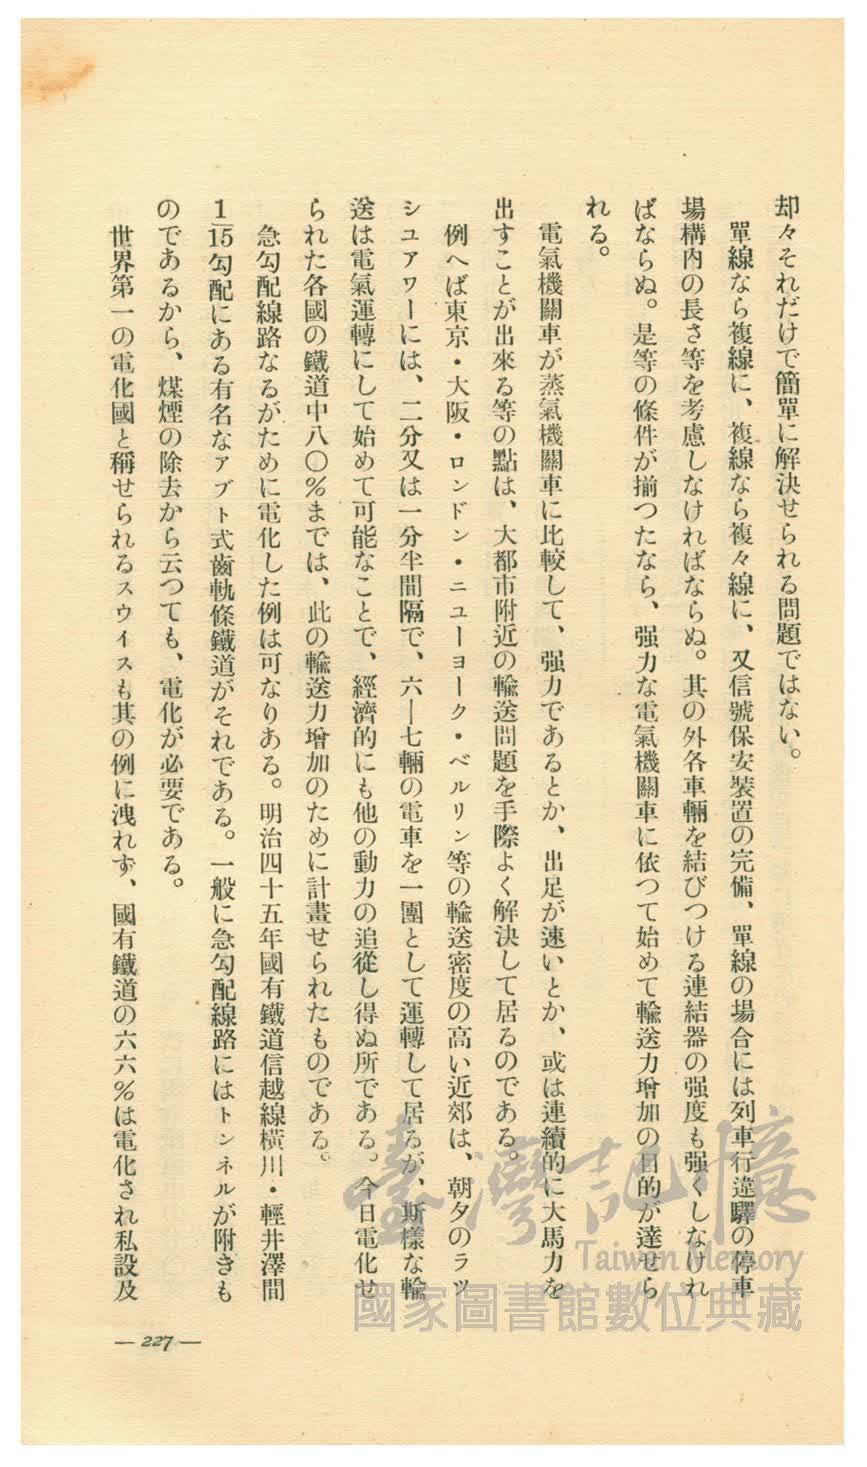 却々それだけで簡單に解決せられる問題ではない。
單線なら複線に、複線なら複々線に、又信號保安裝置の完備、單線の場合には列車行違驛の停車
場構內の長さ等を考慮しなければならぬ。其の外各車輛を結びつける連結器の强度も强くしなけれ
ばならぬ。是等の條件が揃つたなら、强力な電氣機關車に依つて始めて輸送力增加の目的が達せら
れる。
電氣機關車が蒸氣機關車に比較して、强力であるとか、出足が速いとか、或は連續的に大馬力を
出すことが出來る等の點は、大都市附近の輸送問題を手際よく解決して居るのである。
例へば東京・大阪・ロンドン・ニユーヨーク・ベルリン等の輸送密度の高い近郊は、朝夕のラツ
シユアワーには、二分又は一分半間隔で、六―七輛の電車を一團として運轉して居るが、斯樣な輸
送は電氣運轉にして始めて可能なことで、經濟的にも他の動力の追從し得ぬ所である。今日電化せ
られた各國の鐵道中八〇%までは、此の輸送力增加のために計畫せられたものである。
急勾配線路なるがために電化した例は可なりある。明治四十五年國有鐵道信越線橫川・輕井澤間
1/15勾配にある有名なアブト式齒軌條鐵道がそれである。一般に急勾配線路にはトンネルが附きも
のであるから、煤煙の除去から云つても、電化が必要である。
世界第一の電化國と稱せられるスウイスも其の例に洩れず、國有鐵道の六六%は電化され私設及
— 227 —
臺灣記憶
Taiwan Memory
國家圖書館數位典藏